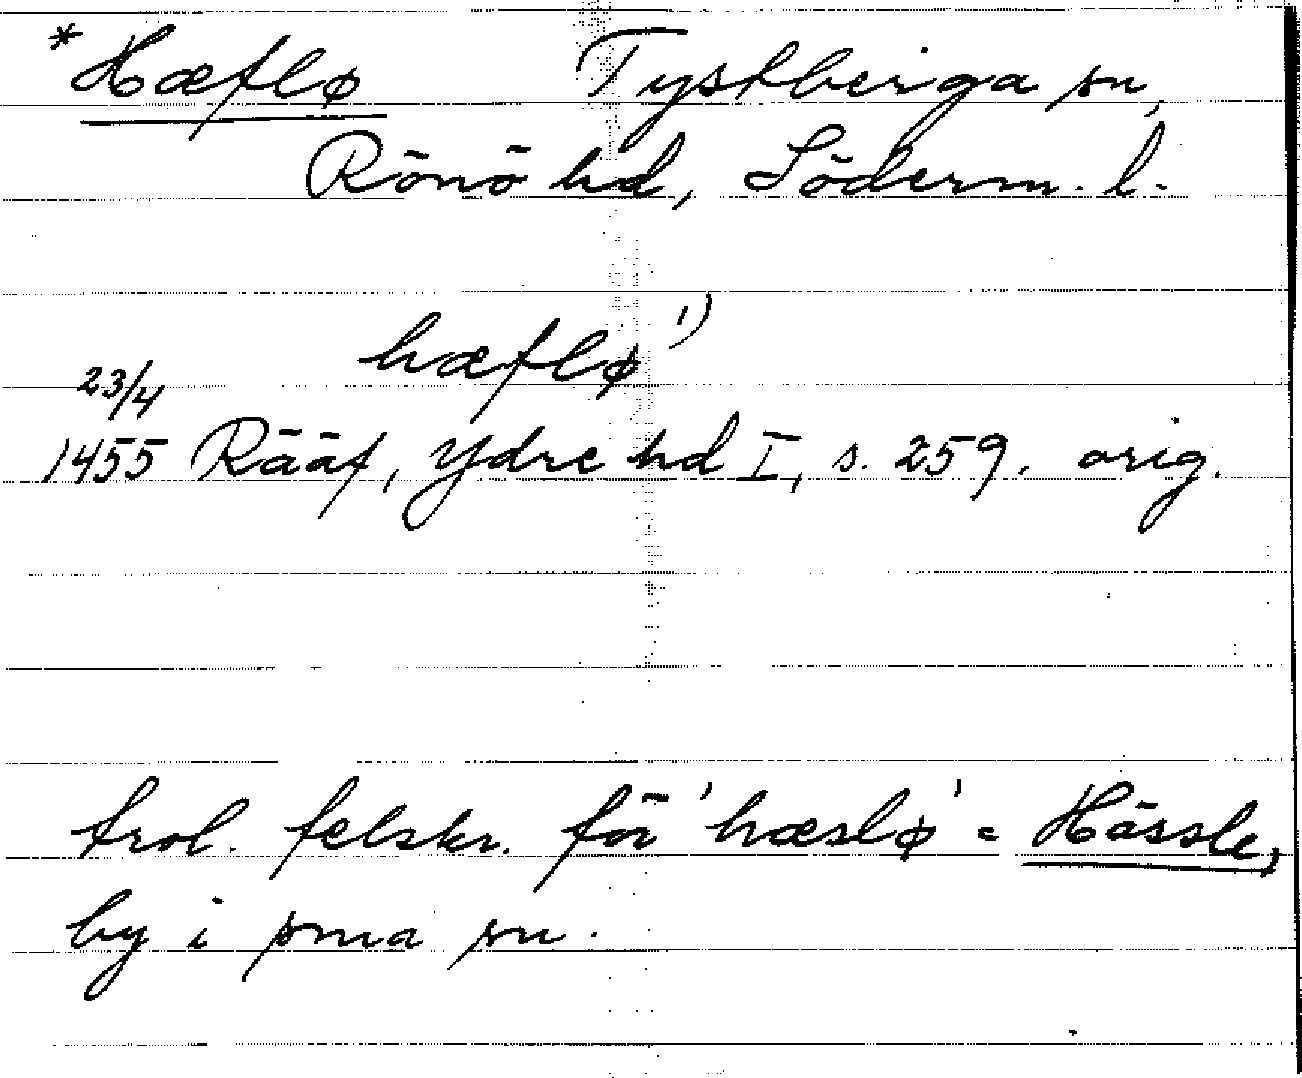 *Hæflø Tystberga sn,
Rönö hd, Söderm. l.
hæflø 1)
23/4
1455 Rääf, Ydre hd I, s. 259. orig.
trol. felskr. för 'hæslø' = Hässle,
by i sma sn.